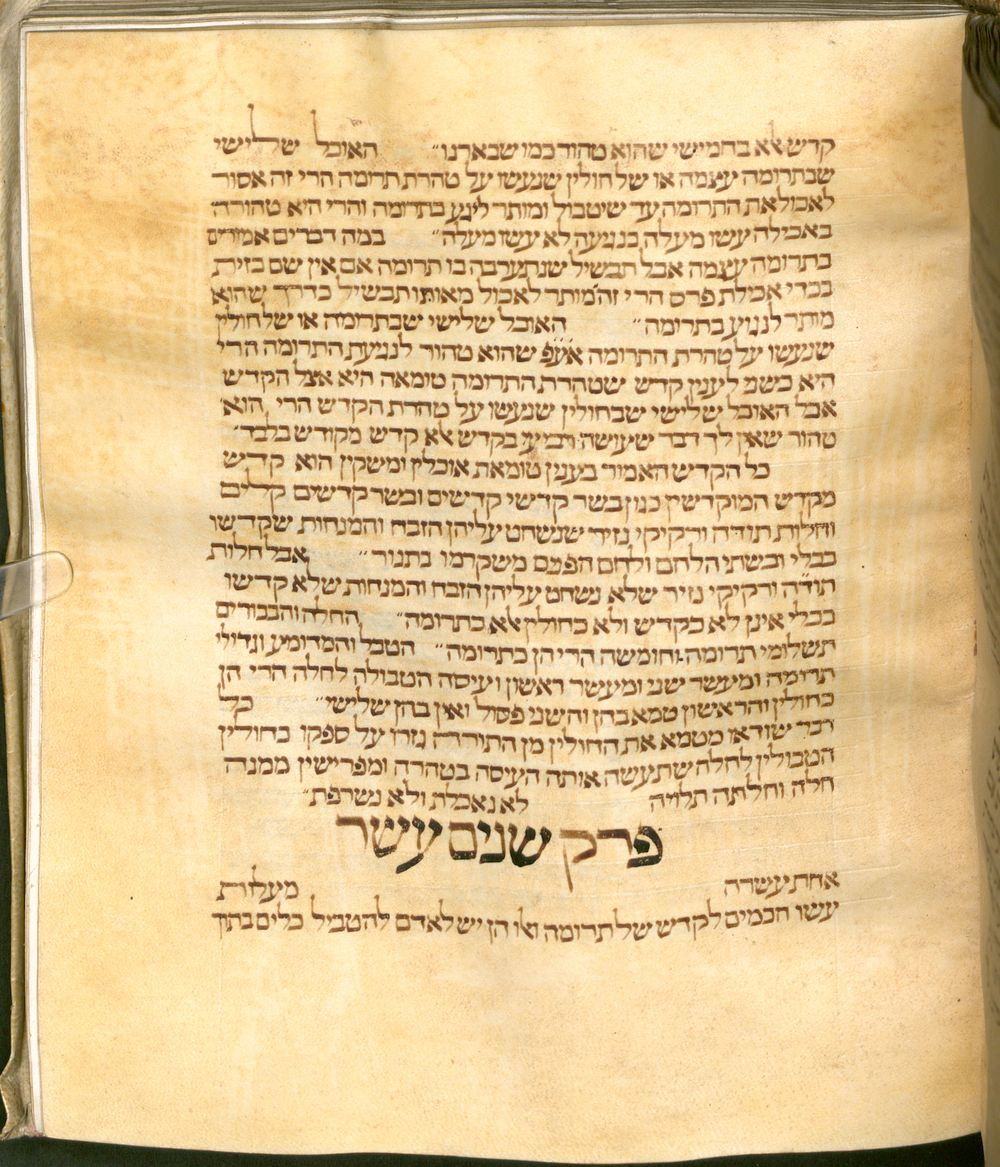 קדש אלא בחמישי שהוא טהור כמו שבארנו״ האוכל שלישי
שבתרומה עצמה או של חולין שנעשו על טהרת תרומה הרי זה אסור
לאכול את התרומה עד שיטבול ומותר ליגע בתרומה והרי היא טהורה
באכילה עשו מעלה בנגיעה לא עשו מעלה״ במה דברים אמורים
בתרומה עצמה אבל תבשיל שנתערבה בו תרומה אם אין שם כזית
בכדי אכילת פרס הרי זה מותר לאכול מאותו תבשיל כדרך שהוא
מותר לנגוע בתרומה״ האוכל שלישי שבתרומה או של חולין
שנעשו על טהרת התרומה אעפ שהוא טהור לנגיעת התרומה הרי
היא כשני לענין קדש שטהרת התרומה טומאה היא אצל הקדש
אבל האוכל שלישי שבחולין שנעשו על טהרת הקדש הרי הוא
טהור שאין לך דבר שעושה רביעי בקדש אלא קדש מקודש בלבד״
כל הקדש האמור בענין טומאת אוכלין ומשקין הוא קדש
מקדש המוקדשין כגון בשר קדשי קדשים ובשר קדשים קלים
וחלות תודה ורקיקי נזיר שנשחט עליהן הזבח והמנחות שקדשו
בכלי ובשתי הלחם ולחם הפנים משקרמו בתנור״ אבל חלות
תודה ורקיקי נזיר שלא נשחט עליהן הזבח והמנחות שלא קדשו
בכלי אינן לא כקדש ולא כחולין אלא כתרומה״ החלה והבכורים
תשלומי תרומה וחומשה הרי הן כתרומה״ הטבל והמדומע וגדולי
תרומה ומעשר שני ומעשר ראשון ועיסה הטבולה לחלה הרי הן
כחולין והראשון טמא בהן והשני פסול ואין בהן שלישי״ כל
דבר שודאו מטמא את החולין מן התורה גזרו על ספקו בחולין
הטבולין לחלה שתעשה אותה העיסה בטהרה ומפרישין ממנה
חלה וחלתה תלויה לא נאכלת ולא נשרפת״
פרק שנים עשר
אחת עשרה מעלות
עשו חכמים לקדש של תרומה ואלו הן יש לאדם להטביל כלים בתוך